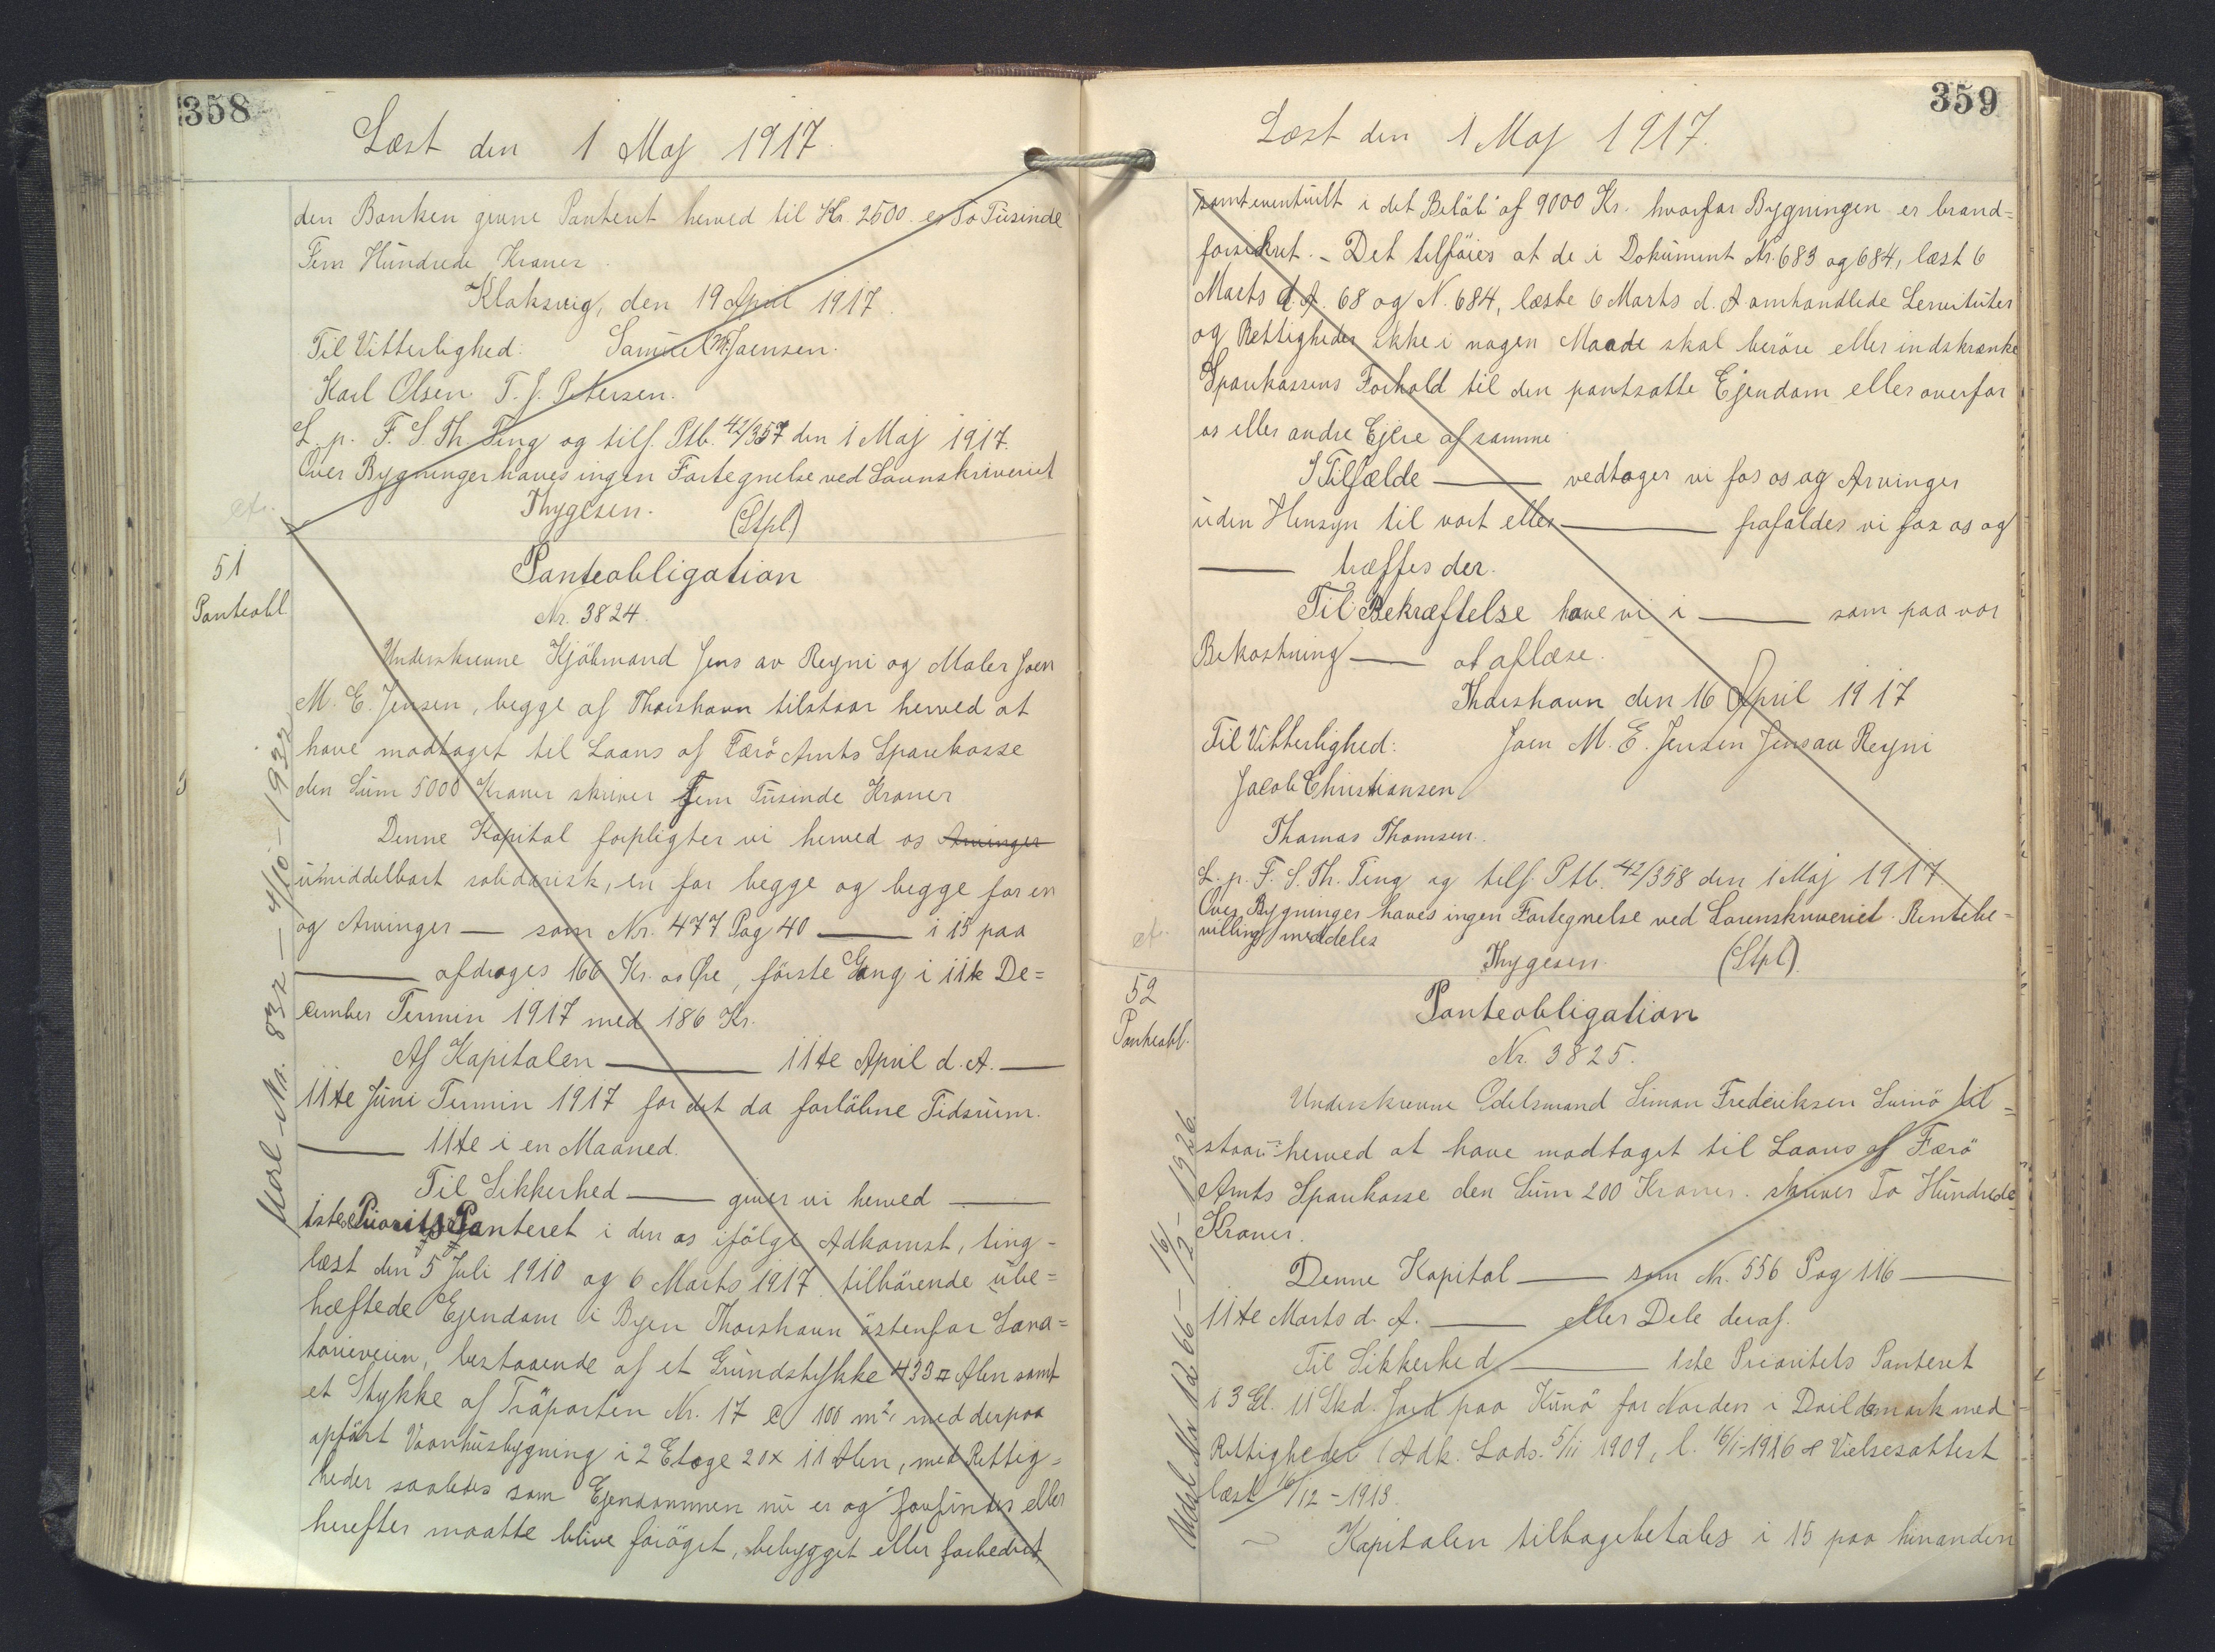 358
Læst den 1 Maj 1917.
den Banken givne Panteret herved til Kr. 2500. er To Tusinde
Fem Hundrede Kroner.
Klaksvig, den 19 April 1917.
Til Vitterlighed: Samuel M. Joensen.
Karl Olsen. T. J. Petersen.
L. p. F. S. Th. Ting og tilf. Ptb. 42/357 den 1 Maj 1917.
Over Bygninger haves ingen Fortegnelse ved Sorenskriveriet
Thygesen. (Stpl)
cf.
51
Panteobl
Panteobligation
Nr. 3824.
Underskrevne Kjöbmand Jens av Reyni og Maler Joen
M. E. Jensen, begge af Thorshavn tilstaar herved at
have modtaget til Laans af Færö Amts Sparekasse
den Sum 5000 Kroner skriver Fem Tusinde Kroner
Denne Kapital forpligter vi herved os Arvinger
umiddelbart solidarisk, en for begge og begge for en
og Arvinger — som Nr. 477 Pag 40 — i 15 paa
— afdrages 166 Kr. oo Øre, förste Gang i 11te De=
cember Termin 1917 med 186 Kr.
Af Kapitalen — 11te April d. A. —
11te Juni Termin 1917 for det da forløbne Tidsrum.
— 11te i en Maaned.
Til Sikkerhed — giver vi herved —
1ste Priorits Panteret i den os ifölge Adkomst, ting-
læst den 5 Juli 1910 og 6 Marts 1917. tilhörende ube=
hæftede Ejendom i Byen Thorshavn östenfor Sana=
torieveien, bestaaende af et Grundstykke 433 □ Alen samt
et Stykke af Traporten Nr. 17 c 100 m², med derpaa
opfört Vaanhusbygning i 2 Etage 20 x 11 Alen, med Rettig=
heder saaledes som Ejendommen nu er og forfindes eller
herefter maatte blive foröget, bebygget eller forbedret,
Udsl. Nr. 832 — 4/10 - 1932
359
Læst den 1 Maj 1917.
samt eventuelt i det Beløb af 9000 Kr. hvorfor Bygningen er brand=
forsikret. - Det tilföies at de i Dokument Nr. 683 og 684, læst 6
Marts d. A. 68 og N. 684, læste 6 Marts d. A omhandlede Servituter
og Rettigheder ikke i nogen Maade skal beröre eller indskrænke
Sparekassens Forhold til den pantsatte Ejendom eller overfor
os eller andre Ejere af samme.
I Tilfælde — vedtager vi for os og Arvinger
uden Hensyn til vort eller — frafalder vi for os og
— træffes der.
Til Bekræftelse have vi i — som paa vor
Bekostning — at aflæse.
Thorshavn den 16 April 1917
Til Vitterlighed: Joen M. E. Jensen Jens av Reyni
Jacob Christiansen
Thomas Thomsen.
L. p. F. S. Th. Ting og tilf. Ptb. 42/358 den 1 Maj 1917.
Over Bygninger haves ingen Fortegnelse ved Sorenskriveriet. Rentebe=
villing meddeles
Thygesen. (Stpl).
cf.
52
Panteobl.
Panteobligation
Nr. 3825.
Underskrevne Odelsmand Simon Frederiksen Svinö til=
staar herved at have modtaget til Laans af Færö
Amts Sparekasse den Sum 200 Kroner. skriver To Hundrede
Kroner.
Denne Kapital — som Nr. 556 Pag 116 —
11te Marts d. A. — eller Dele deraf.
Til Sikkerhed — 1ste Prioritets Panteret
i 3 Gl. 11 Skd. Jord paa Kunö for Norden i Dailamark med
Rettigheder (Adk. Lods. 5/11 1909, l. 16/1-1916 & Vielsesattest
læst 16/12 - 1913.
Kapitalen tilbagebetales i 15 paa hinanden
Udsl. Nr 1266 — 16/12 - 1926